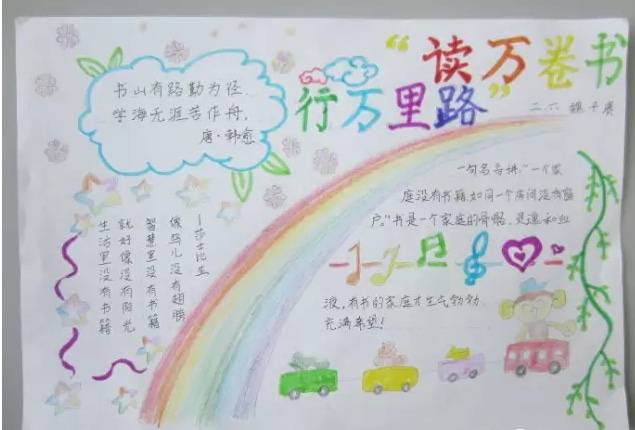 “读万卷书
行万里路”
二.六
书山有路勤为径
学海无涯苦作舟。
唐·韩愈
一句名言讲：“一个家
庭没有书籍,如同一个房间没有窗
户。”书是一个家庭的骨骼、灵魂和血
液,有书的家庭才生气勃勃、
充满希望!
生活里没有书籍
就好像没有阳光
智慧里没有书籍
像鸟儿没有翅膀
—莎士比亚